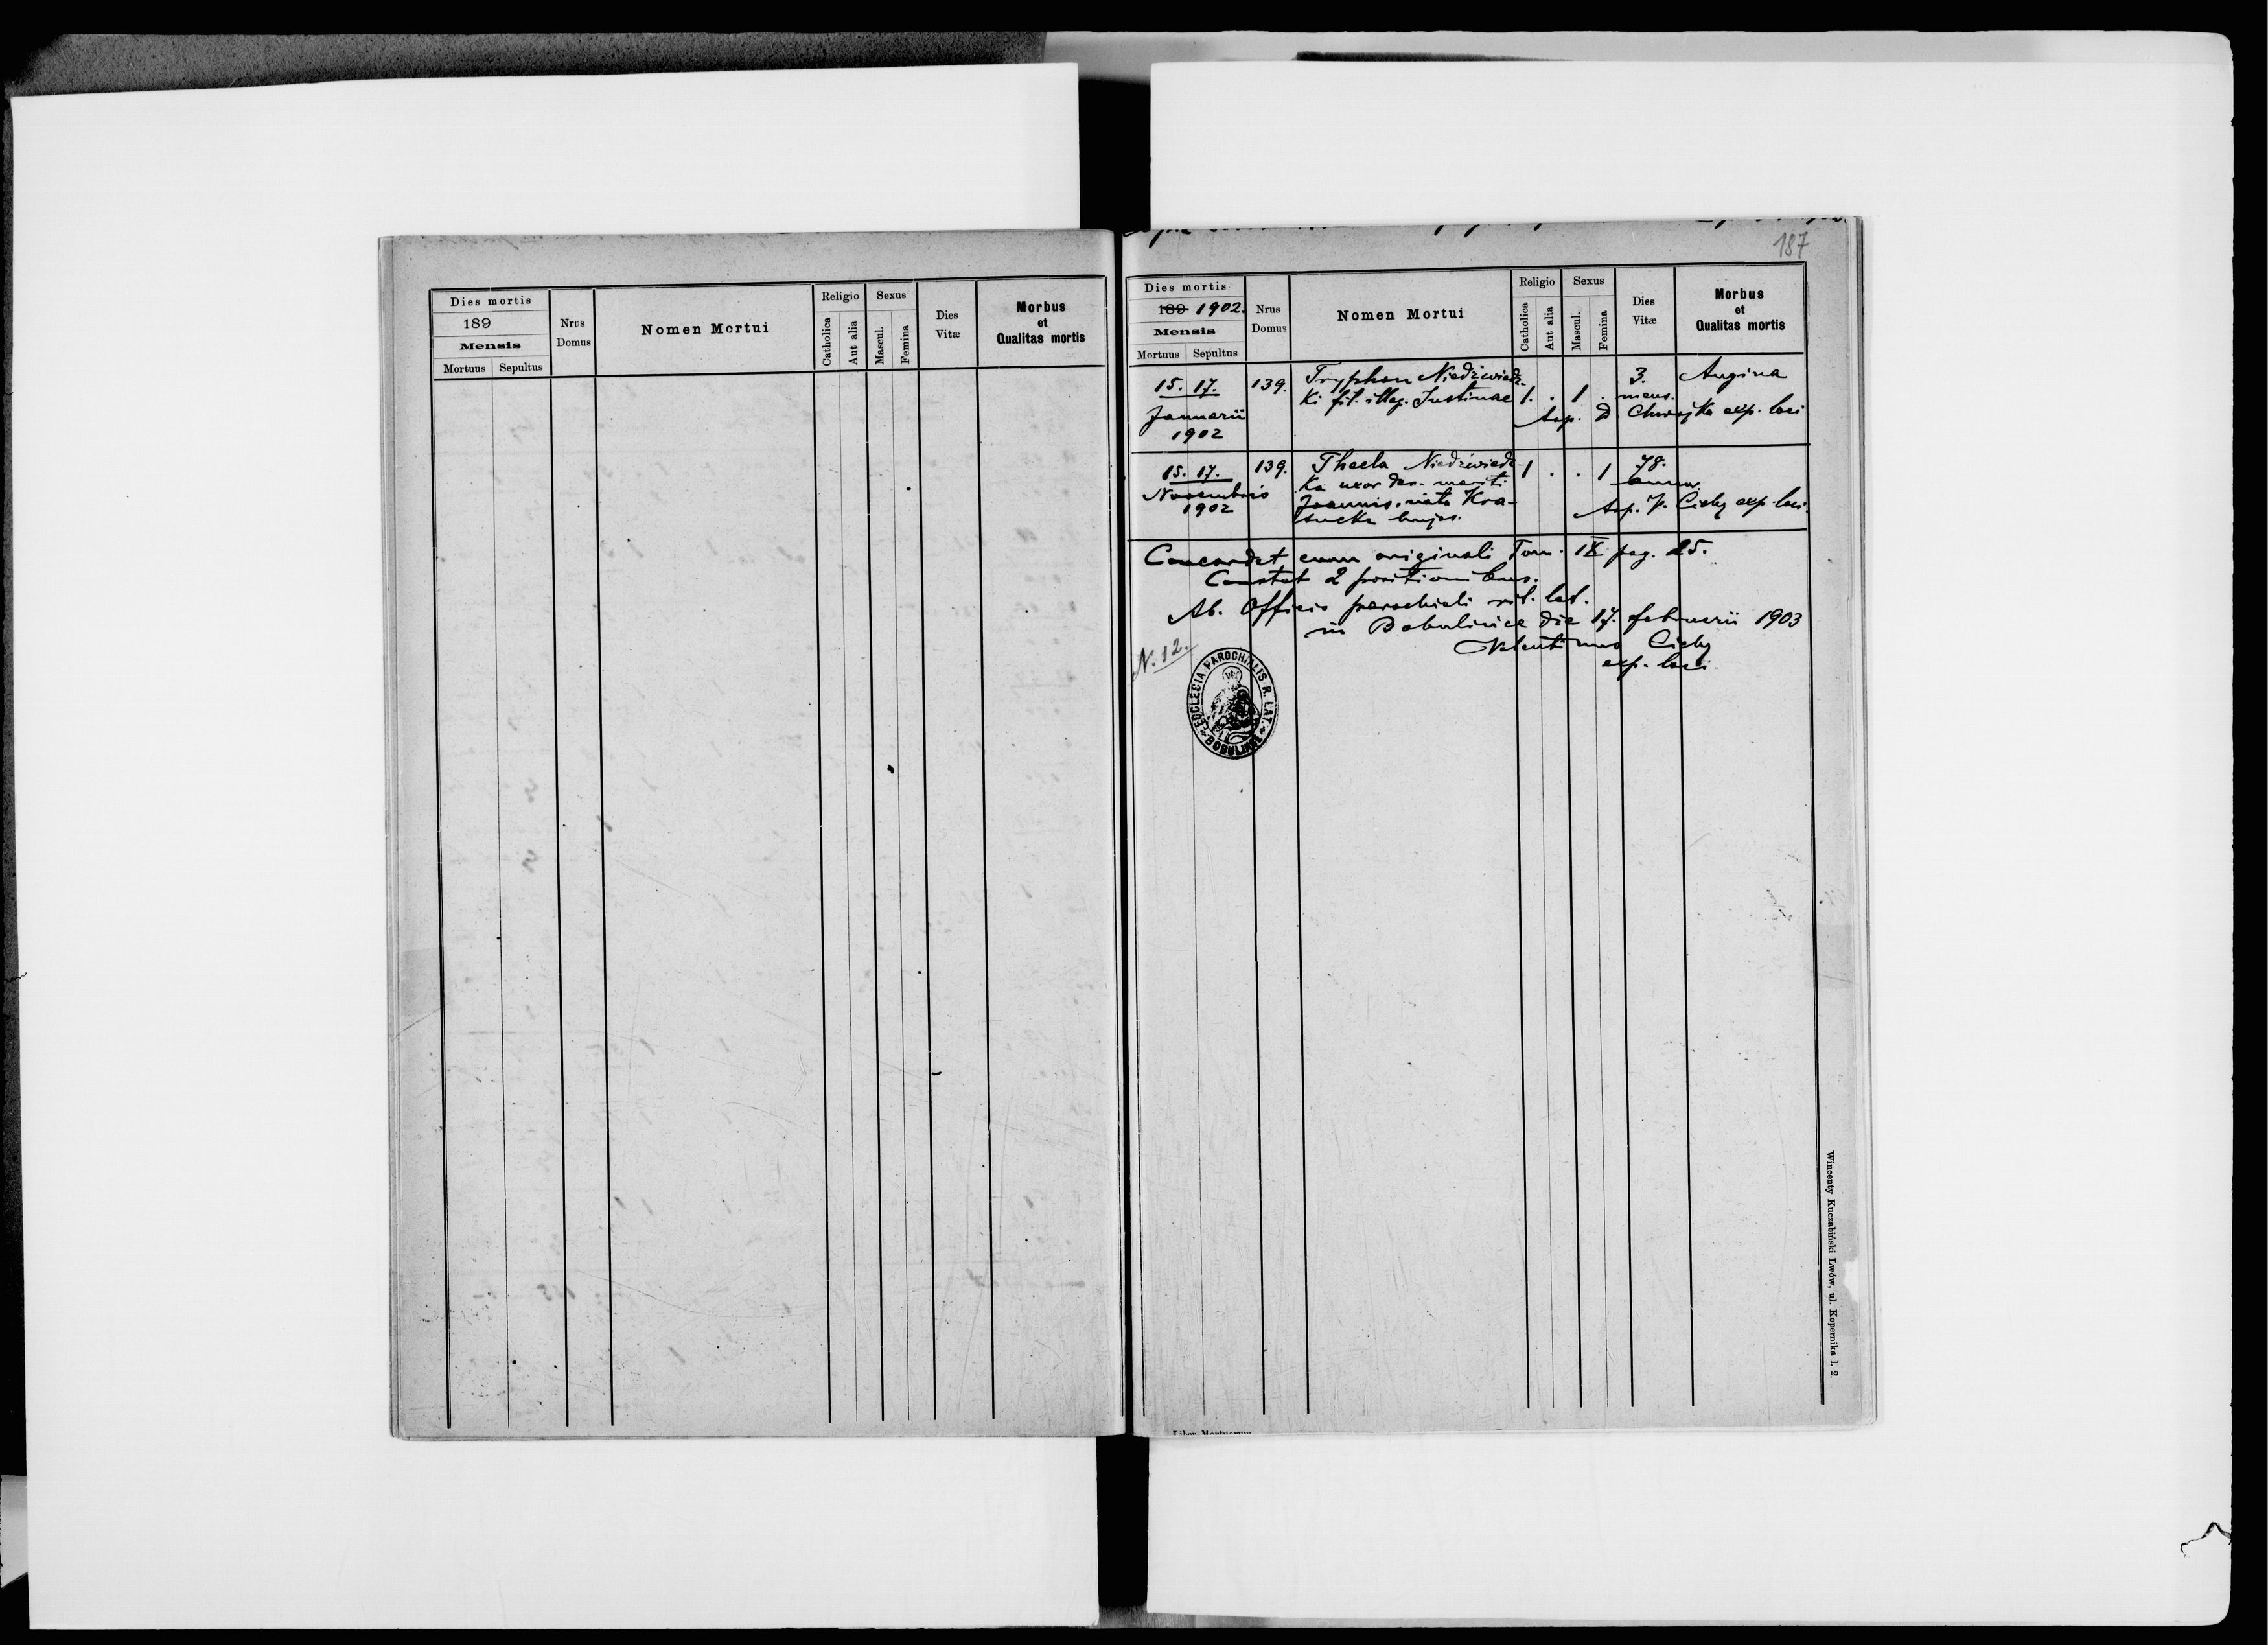 Dies mortis
189
Mensis
Mortuus Sepultus
Nrus Domus
Nomen Mortui
Religio
Catholica
Aut alia
Sexus
Mascul.
Femina
Dies Vitæ
Morbus
et
Qualitas mortis
187
Dies mortis
189 1902.
Mensis
Mortuus Sepultus
Nrus Domus
Nomen Mortui
Religio
Catholica
Aut alia
Sexus
Mascul.
Femina
Dies Vitæ
Morbus
et
Qualitas mortis
15. 17. 139. Tryphon Niedźwiedz- 3. Angina
Januarii ki fil. illeg. Justinae 1. . 1 . mens.
1902 Asp. D. Chwojka exp. loci
15. 17. 139. Thecla Niedźwiedz- 1 . . 1 78.
Novembris ka uxor mariti annor.
1902 Joannis, nata Kra-
sucka hujas. Asp. Cichy exp. loci.
Concordat cum originali Tom. IX pag. 25.
Constat 2 positionibus.
Ab. Officio parochiali rit. lat.
in Bobulince die 17. februarii 1903
Valentinus Cichy
exp. loci
N. 12.
ECCLESIA PAROCHIALIS R. LAT.
BOBULINCE
Wincenty Kuczabiński Lwów, ul. Kopernika l. 2.
Liber Mortuorum